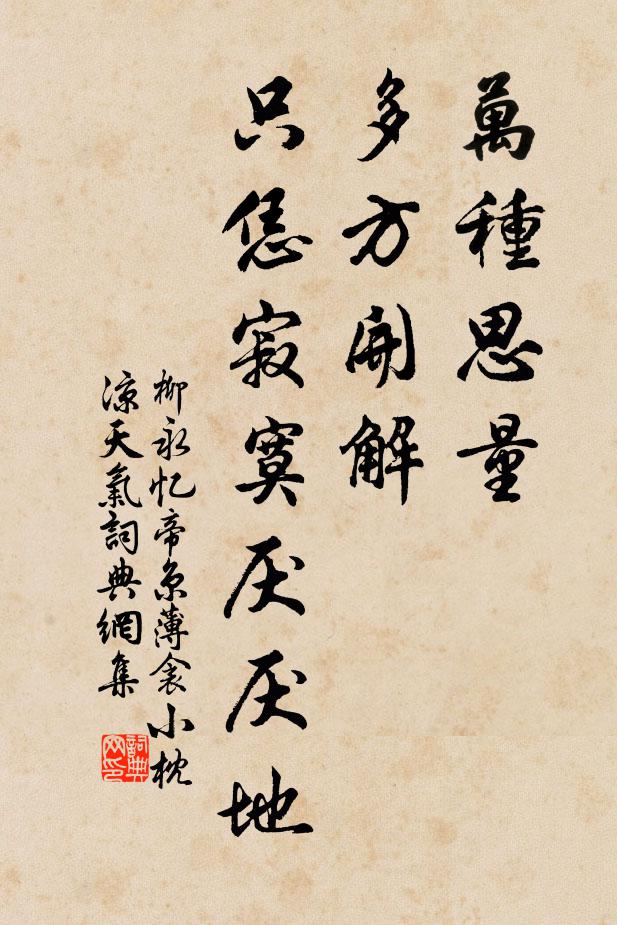 萬種思量
多方開解
只恁寂寞厌厌地
柳永忆帝京薄衾小枕
凉天氣詞典網集
詞典
网印